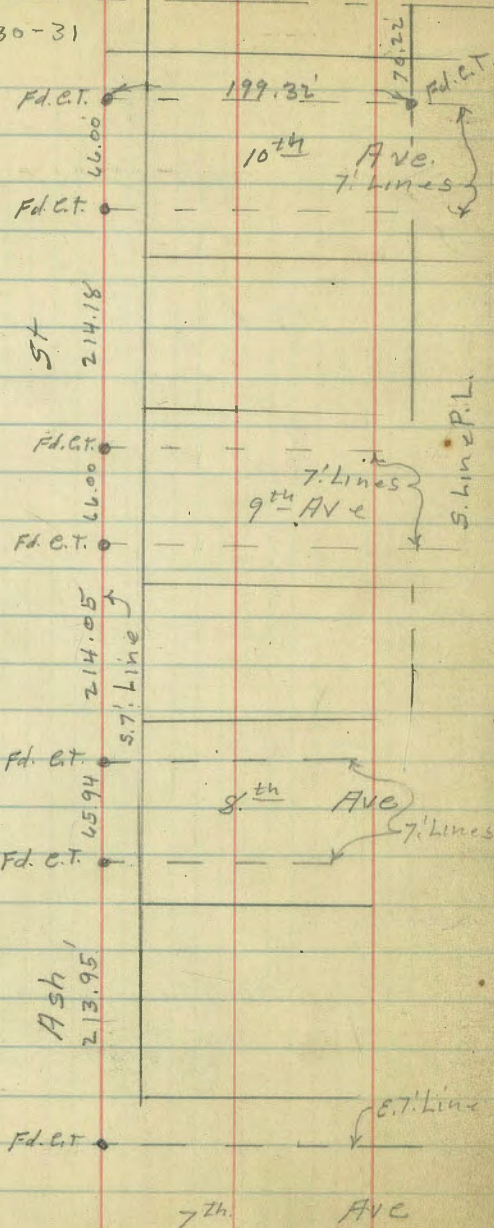 30-31
70.22'
Fd. C.T.
199.32'
Fd. C.T.
66.00'
10th Ave.
7' Lines
Fd. C.T.
St
214.18
S. Line P.L.
Fd. C.T.
7' Lines
66.00
9th Ave
Fd. C.T.
214.05
S. 7' Line
Fd. C.T.
65.94
8th Ave
7' Lines
Fd. C.T.
Ash
213.95'
E. 7' Line
Fd. C.T.
7th Ave